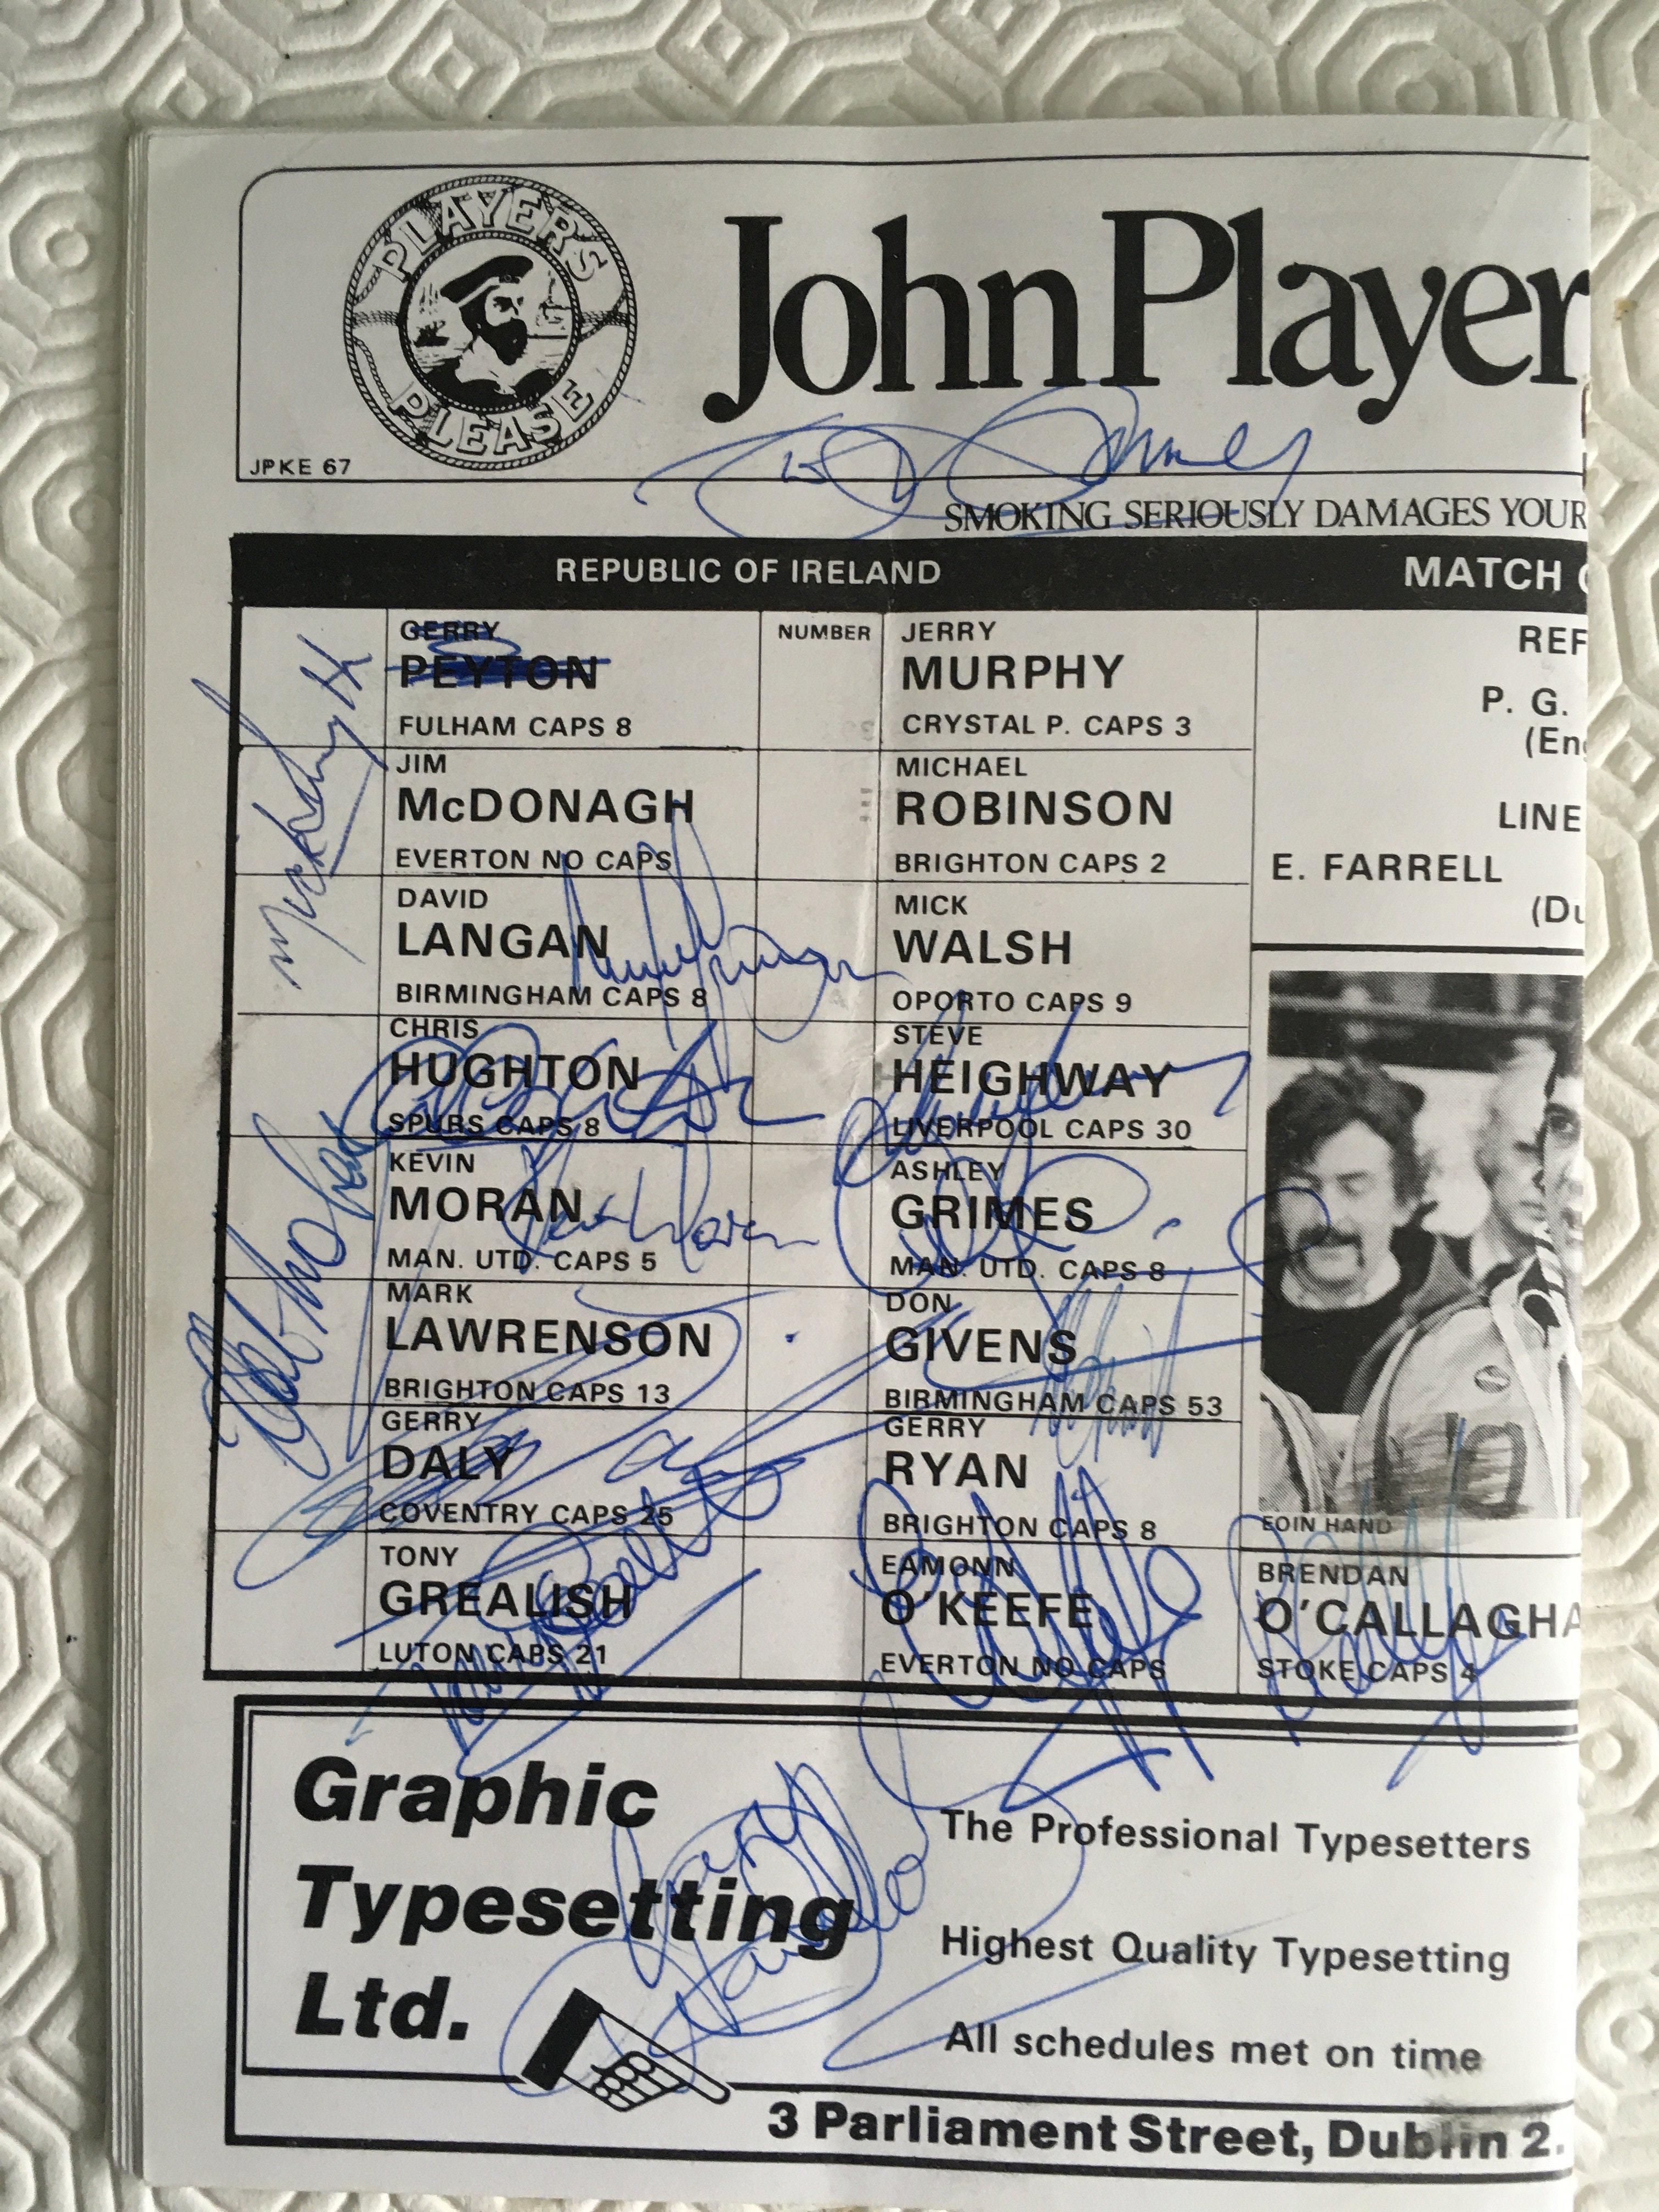 PLAYER'S
PLEASE
John Player
JPKE 67
SMOKING SERIOUSLY DAMAGES YOUR
REPUBLIC OF IRELAND
MATCH
GERRY
PEYTON
FULHAM CAPS 8
NUMBER
JERRY
MURPHY
CRYSTAL P. CAPS 3
JIM
McDONAGH
EVERTON NO CAPS
MICHAEL
ROBINSON
BRIGHTON CAPS 2
DAVID
LANGAN
BIRMINGHAM CAPS 8
MICK
WALSH
OPORTO CAPS 9
CHRIS
HUGHTON
SPURS CAPS 8
STEVE
HEIGHWAY
LIVERPOOL CAPS 30
KEVIN
MORAN
MAN. UTD. CAPS 5
Kevin Moran
ASHLEY
GRIMES
MAN. UTD. CAPS 8
MARK
LAWRENSON
BRIGHTON CAPS 13
DON
GIVENS
BIRMINGHAM CAPS 53
GERRY
DALY
COVENTRY CAPS 25
GERRY
RYAN
BRIGHTON CAPS 8
TONY
GREALISH
LUTON CAPS 21
EAMONN
O'KEEFE
EVERTON NO CAPS
REF
P. G.
(En
LINE
E. FARRELL
(Du
EOIN HAND
BRENDAN
O'CALLAGHA
STOKE CAPS 4
Graphic
Typesetting
Ltd.
The Professional Typesetters
Highest Quality Typesetting
All schedules met on time
3 Parliament Street, Dublin 2.